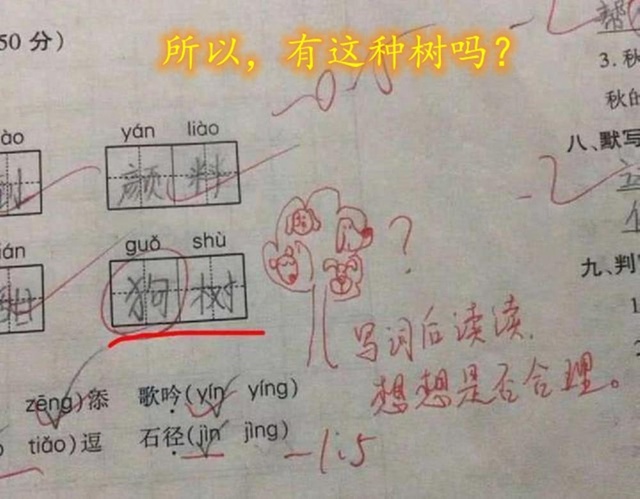 50 分）
所以，有这种树吗？
帮
3. 秋
秋的
ào
yán liào
颜料
八、默写
ián
guǒ shù
狗树
？
九、判
1.
2
写词后读读，
想想是否合理。
zēng)添 歌吟(yín yíng)
tiǎo)逗 石径(jìn jìng)
-1.5